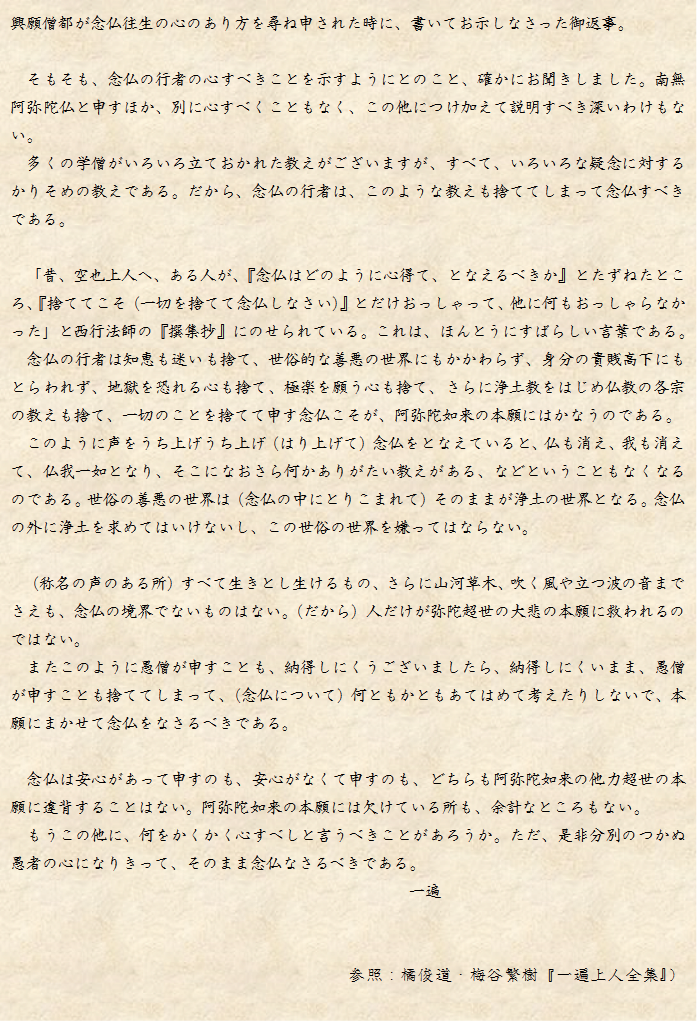 興願僧都が念仏往生の心のあり方を尋ね申された時に、書いてお示しなさった御返事。
そもそも、念仏の行者の心すべきことを示すようにとのこと、確かにお聞きしました。南無
阿弥陀仏と申すほか、別に心すべくこともなく、この他につけ加えて説明すべき深いわけもな
い。
多くの学僧がいろいろ立ておかれた教えがございますが、すべて、いろいろな疑念に対する
かりそめの教えである。だから、念仏の行者は、このような教えも捨ててしまって念仏すべき
である。
「昔、空也上人へ、ある人が、『念仏はどのように心得て、となえるべきか』とたずねたとこ
ろ、『捨ててこそ（一切を捨てて念仏しなさい）』とだけおっしゃって、他に何もおっしゃらなか
った」と西行法師の『撰集抄』にのせられている。これは、ほんとうにすばらしい言葉である。
念仏の行者は知恵も迷いも捨て、世俗的な善悪の世界にもかかわらず、身分の貴賎高下にも
とらわれず、地獄を恐れる心も捨て、極楽を願う心も捨て、さらに浄土教をはじめ仏教の各宗
の教えも捨て、一切のことを捨てて申す念仏こそが、阿弥陀如来の本願にはかなうのである。
このように声をうち上げうち上げ（はり上げて）念仏をとなえていると、仏も消え、我も消え
て、仏我一如となり、そこになおさら何かありがたい教えがある、などということもなくなる
のである。世俗の善悪の世界は（念仏の中にとりこまれて）そのままが浄土の世界となる。念仏
の外に浄土を求めてはいけないし、この世俗の世界を嫌ってはならない。
（称名の声のある所）すべて生きとし生けるもの、さらに山河草木、吹く風や立つ波の音まで
さえも、念仏の境界でないものはない。（だから）人だけが弥陀超世の大悲の本願に救われるの
ではない。
またこのように愚僧が申すことも、納得しにくうございましたら、納得しにくいまま、愚僧
が申すことも捨ててしまって、（念仏について）何ともかともあてはめて考えたりしないで、本
願にまかせて念仏をなさるべきである。
念仏は安心があって申すのも、安心がなくて申すのも、どちらも阿弥陀如来の他力超世の本
願に違背することはない。阿弥陀如来の本願には欠けている所も、余計なところもない。
もうこの他に、何をかくかく心すべしと言うべきことがあろうか。ただ、是非分別のつかぬ
愚者の心になりきって、そのまま念仏なさるべきである。
一遍
参照：橘俊道・梅谷繁樹『一遍上人全集』）